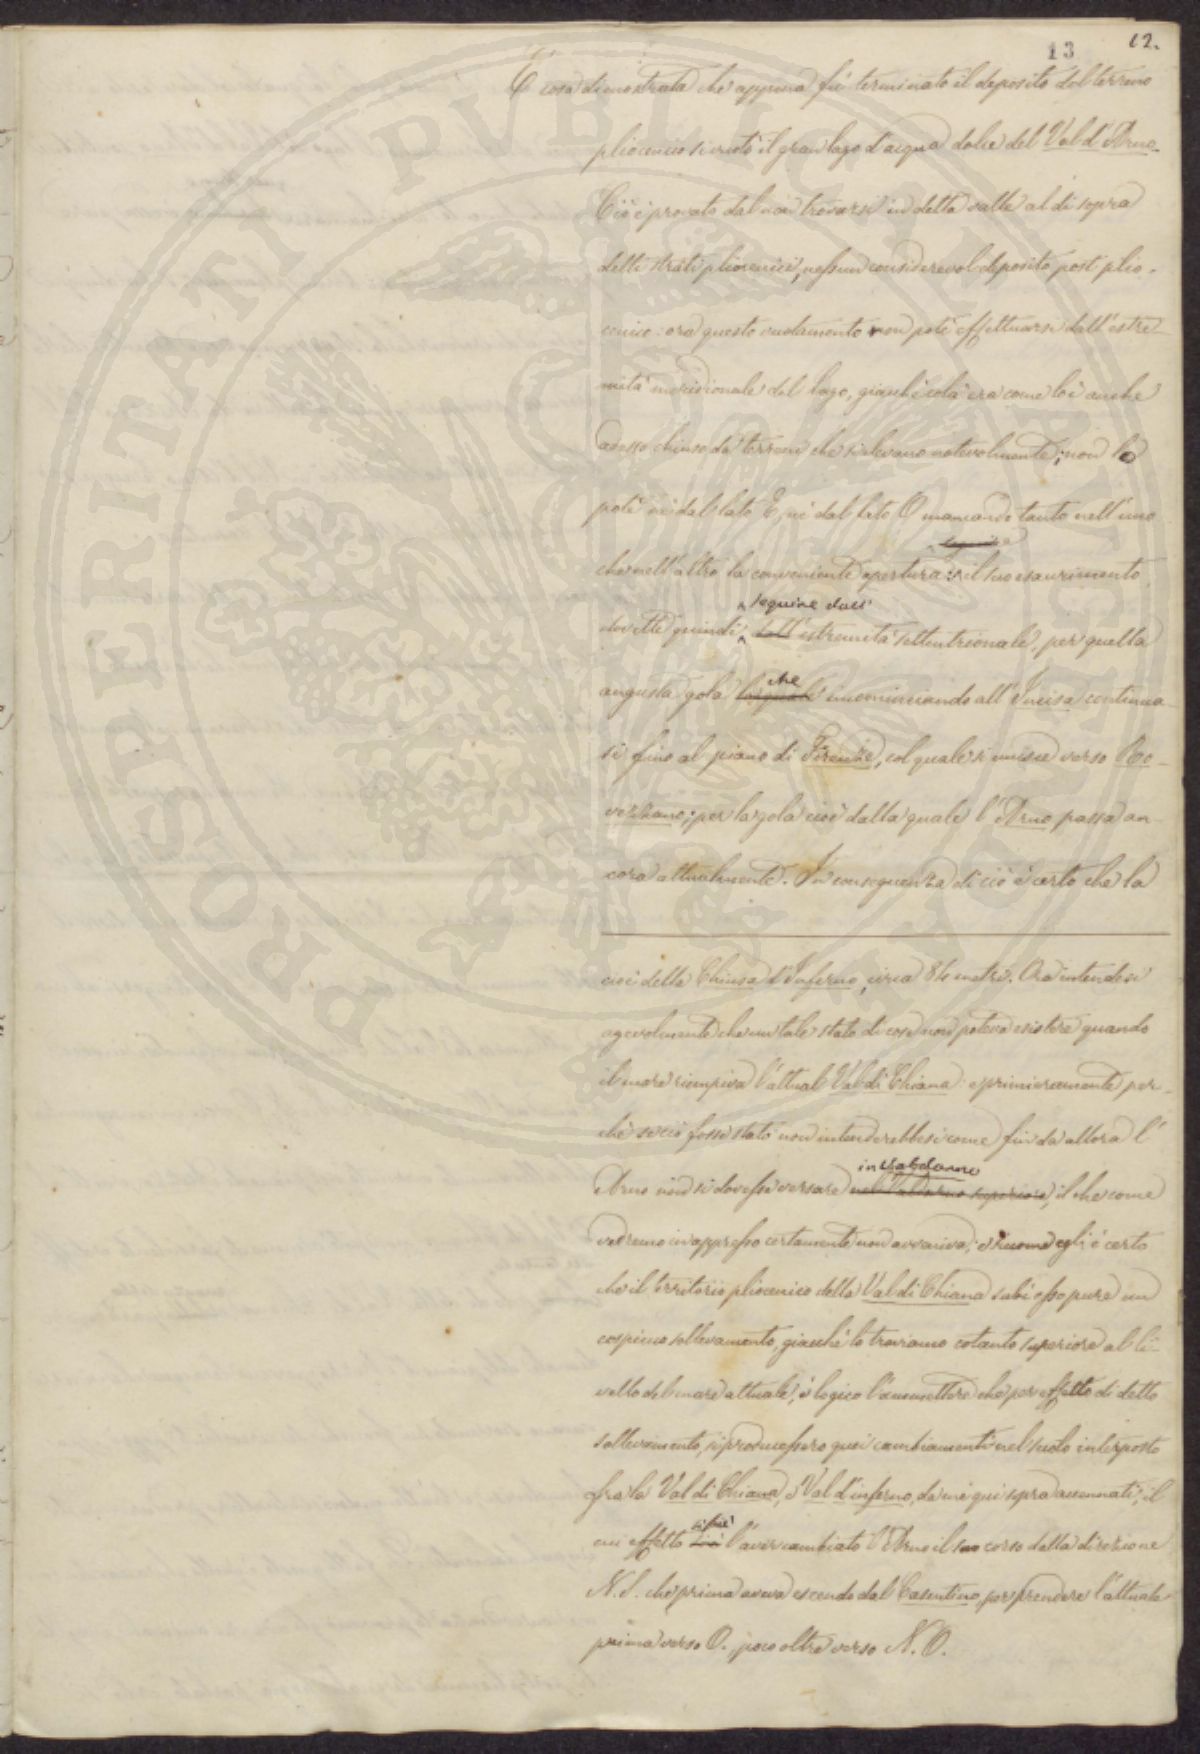 13 12.
È cosa dimostrata che appena fù terminato il deposito del terreno
pliocenico si vuotò il gran lago d'acqua dolce del Val d'Arno.
Ciò è provato dal non trovarsi in detta valle al di sopra
delli strati pliocenici, nessun considerevol deposito post plio-
cenico: ora questo vuotamento non potè effettuarsi dall'estre-
mità meridionale del lago, giacchè colà era come lo è anche
adesso chiuso da terreni che si elevano notevolmente; non lo
potè nè dal lato E, nè dal lato O mancando tanto nell'uno
che nell'altro la conveniente apertura: il suo esaurimento
dovette quindi seguire dall'
dall' estremità settentrionale, per quella
angusta gola che
la quale incominciando all'Incisa continua-
si fino al piano di Firenze, col quale si unisce verso Ro-
vezzano; per la gola cioè dalla quale l'Arno passa an-
cora attualmente. In conseguenza di ciò è certo che la
cioè della Chiusa d'Inferno, circa 84 metri. Ora intendesi
agevolmente che un tale stato di cose non poteva esistere quando
il mare riempiva l'attual Val di Chiana: e primieramente per-
chè se ciò fosse stato non intenderebbesi come fin da allora l'
Arno non si dovesse versare in Valdarno
nel Valdarno superiore, il che come
vedremo in appresso certamente non avveniva; e siccome egli è certo
che il territorio pliocenico della Val di Chiana subì esso pure un
cospicuo sollevamento, giacchè lo troviamo cotanto superiore al li-
vello del mare attuale, è logico l'ammettere che per effetto di detto
sollevamento, si producessero quei cambiamenti nel suolo interposto
fra la Val di Chiana, e Val d'inferno, da me qui sopra accennati; il
cui effetto si fù l'aver cambiato l'Arno il suo corso dalla direzione
N.S. che prima aveva escendo dal Casentino, per prendere l'attuale
prima verso O., poco oltre verso N.O.
PROSPERITATI PUBLICAE